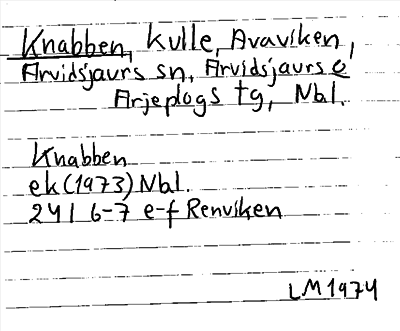 Knabben, kulle, Avaviken,
Arvidsjaurs sn, Arvidsjaurs o
Arjeplogs tg, Nbl.
Knabben
ek (1973) Nbl.
24I 6-7 e-f Renviken
LM 1974